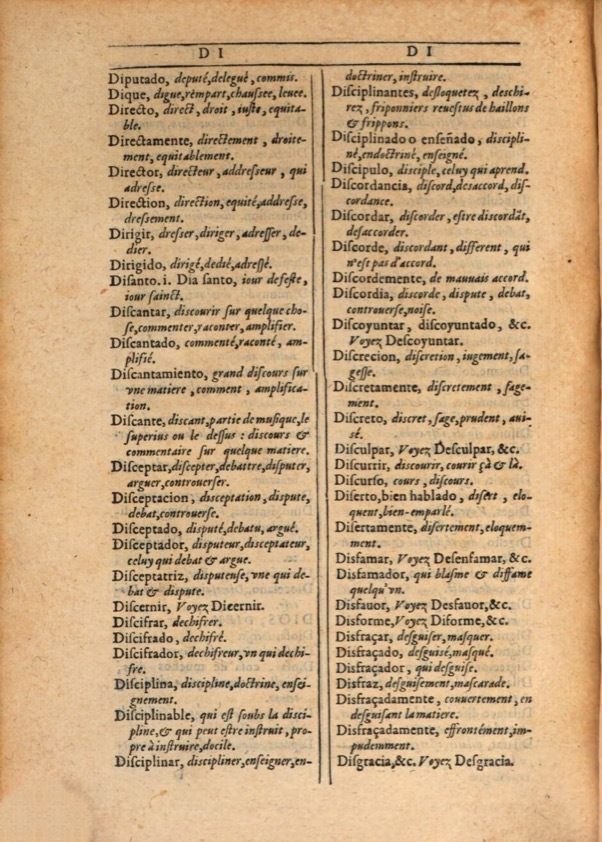 DI
Diputado, deputé, delegué, commis.
Dique, digue, rēmpart, chaussee, leuee.
Directo, direct, droit, iuste, equita-
ble.
Directamente, directement, droite-
ment, equitablement.
Director, directeur, addresseur, qui
adresse.
Direction, direction, equité, addresse,
dressement.
Dirigir, dresser, diriger, adresser, de-
dier.
Dirigido, dirigé, dedié, adressé.
Disanto. i. Dia santo, iour de feste,
iour sainct.
Discantar, discourir sur quelque cho-
se, commenter, raconter, amplifier.
Discantado, commenté, raconté, am-
plifié.
Discantamiento, grand discours sur
vne matiere, comment, amplifica-
tion.
Discante, discant, partie de musique, le
superius ou le dessus: discours &
commentaire sur quelque matiere.
Disceptar, discepter, debattre, disputer,
arguer, controuerser.
Disceptacion, disceptation, dispute,
debat, controuerse.
Disceptado, disputé, debatu, argué.
Disceptador, disputeur, disceptateur,
celuy qui debat & argue.
Disceptatriz, disputeuse, vne qui de-
bat & dispute.
Discernir, Voyez Dicernir.
Discifrar, dechifrer.
Discifrado, dechifré.
Discifrador, dechifreur, vn qui dechi-
fre.
Disciplina, discipline, doctrine, ensei-
gnement.
Disciplinable, qui est soubs la disci-
pline, & qui peut estre instruit, pro-
pre à instruire, docile.
Disciplinar, discipliner, enseigner, en-
DI
doctriner, instruire.
Disciplinantes, desloquetez, deschi-
rez, friponniers reuestus de haillons
& frippons.
Disciplinado o enseñado, discipli-
né, endoctriné, enseigné.
Discipulo, disciple, celuy qui aprend.
Discordancia, discord, desaccord, dis-
cordance.
Discordar, discorder, estre discordāt,
desaccorder.
Discorde, discordant, different, qui
n'est pas d'accord.
Discordemente, de mauuais accord.
Discordia, discorde, dispute, debat,
controuerse, noise.
Discoyuntar, discoyuntado, &c.
Voyez Descoyuntar.
Discrecion, discretion, iugement, sa-
gesse.
Discretamente, discretement, sage-
ment.
Discreto, discret, sage, prudent, aui-
sé.
Disculpar, Voyez Desculpar, &c.
Discurrir, discourir, courir çà & là.
Discurso, cours, discours.
Diserto, bien hablado, disert, elo-
quent, bien-emparlé.
Disertamente, disertement, eloquem-
ment.
Disfamar, Voyez Desenfamar, &c.
Disfamador, qui blasme & diffame
quelqu'vn.
Disfauor, Voyez Desfauor, &c.
Disforme, Voyez Diforme, &c.
Disfraçar, desguiser, masquer.
Disfraçado, desguisé, masqué.
Disfraçador, qui desguise.
Disfraz, desguisement, mascarade.
Disfraçadamente, couuertement, en
desguisant la matiere.
Disfraçadamente, effrontément, im-
pudemment.
Disgracia, &c. Voyez Desgracia.